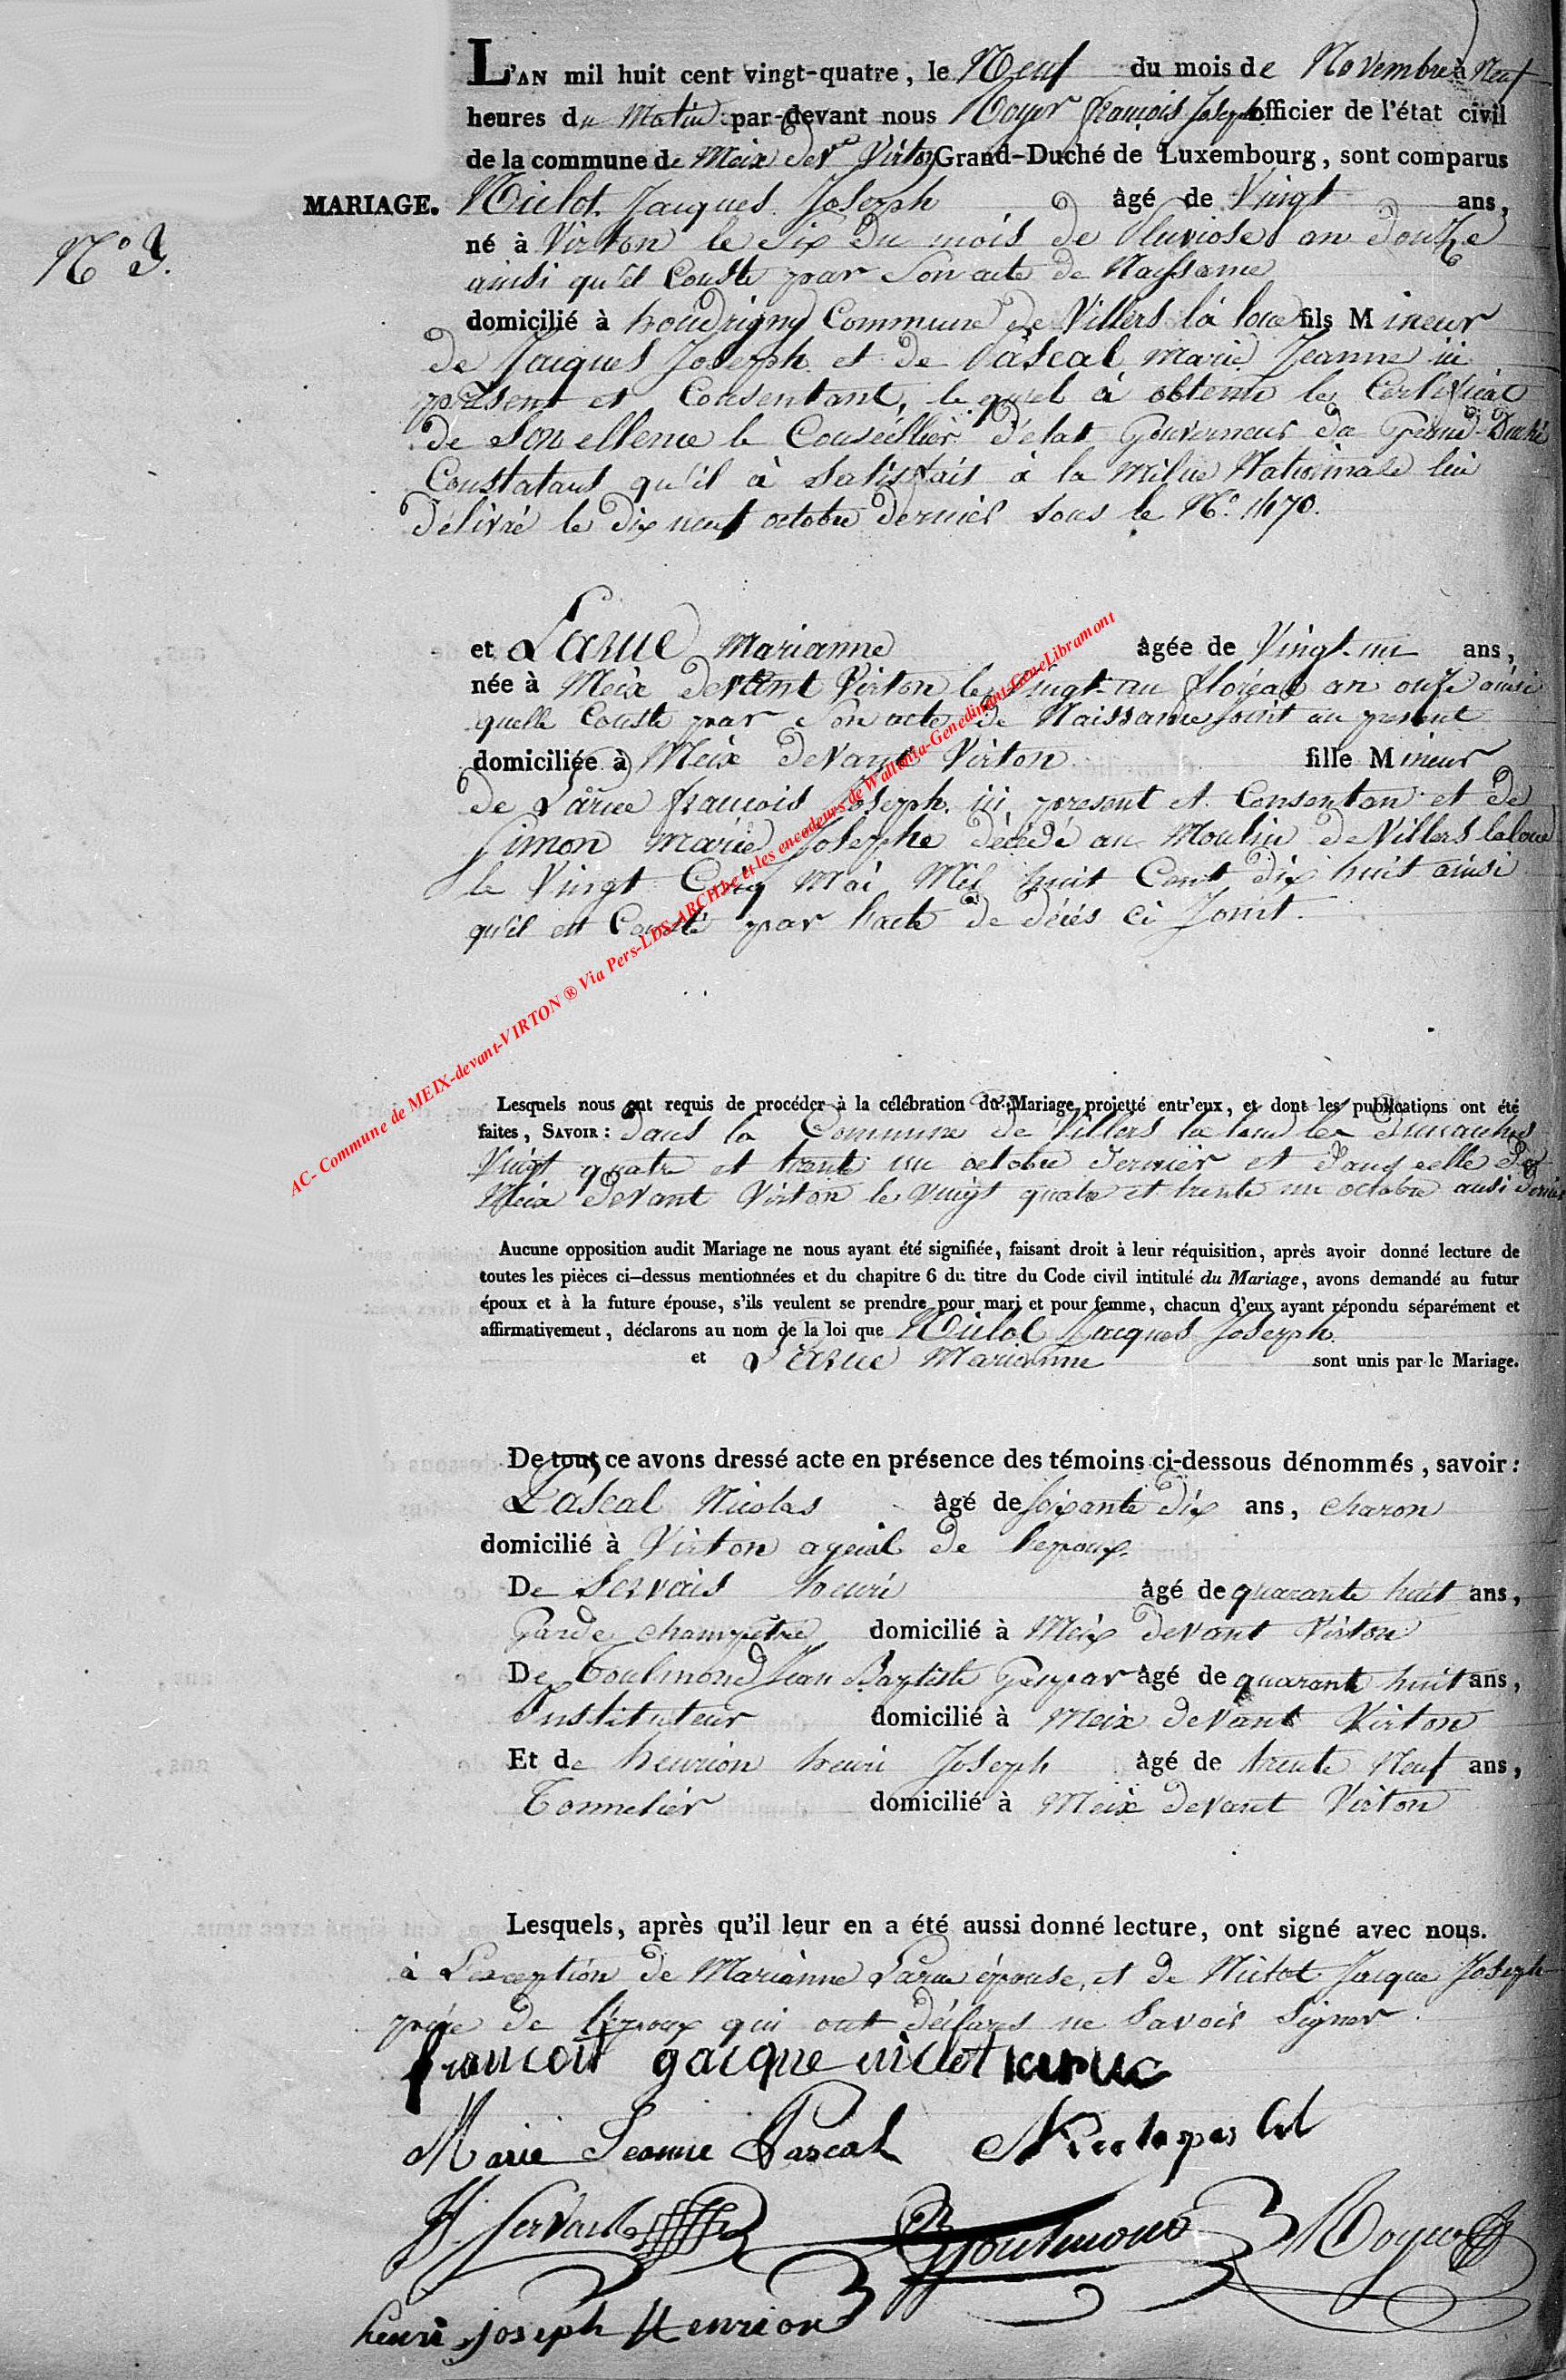 L'AN mil huit cent vingt-quatre, le Neuf du mois de Novembre à Neuf
heures du Matin par-devant nous françois Joseph officier de l'état civil
de la commune de Meix dev.t Virton Grand-Duché de Luxembourg, sont comparus
MARIAGE. Niclot Jacques Joseph âgé de Vingt ans,
N° 9.
né à Virton le Six du mois de Pluviose an douze
ainsi qu'il Conste par Son acte de Nayssance
domicilié à houdrigny Commune de Villers la loue fils Mineur
de Jacques Joseph et de Pascal marie Jeanne ici
présent et Consentant, lequel à obtenu le Certificat
de Son ellence le Conseillier d'état Gouverneur du Grand-Duché
Constatant qu'il à Satisfait à la Milice Nationnale lui
délivré le dix neuf octobre dernier sous le N° 1170.
et Larue Marianne âgée de Vingt-un ans,
née à Meix devant Virton le vingt-un floréal an onze ainsi
quelle Conste par Son acte de Naissance joint au present
domiciliée à Meix devant Virton fille Mineur
de Larue francois Joseph ici present et Consentan et de
Simon marie Josephe décédé au Moulin de Villers laloue
le Vingt Cinq Mai Mil huit Cent dix huit ainsi
qu'il est Consté par lacte de décés ci Joint.
Lesquels nous ont requis de procéder à la célébration du Mariage projetté entr'eux, et dont les publications ont été
faites, SAVOIR : dans la Commune de Villers la loue les dimanches
Vingt quatre et trente un octobre dernier et dans celle de
Meix devant Virton le vingt quatre et trente un octobre aussi dernier
Aucune opposition audit Mariage ne nous ayant été signifiée, faisant droit à leur réquisition, après avoir donné lecture de
toutes les pièces ci-dessus mentionnées et du chapitre 6 du titre du Code civil intitulé du Mariage, avons demandé au futur
époux et à la future épouse, s'ils veulent se prendre pour mari et pour femme, chacun d'eux ayant répondu séparément et
affirmativement, déclarons au nom de la loi que Niclot Jacques Joseph
et Larue Marianne sont unis par le Mariage.
De tout ce avons dressé acte en présence des témoins ci-dessous dénommés, savoir :
Pascal Nicolas âgé de soixante dix ans, charon
domicilié à Virton ayeul de lepoux.
De Servais henri âgé de quarante huit ans,
Garde champetre domicilié à Meix devant Virton
De Goulmond Jean Baptiste Gaspar âgé de quarante huit ans,
Instituteur domicilié à Meix devant Virton
Et de henrion henri Joseph âgé de trente Neuf ans,
Tonnelier domicilié à Meix devant Virton
Lesquels, après qu'il leur en a été aussi donné lecture, ont signé avec nous.
à Lexception de Marianne Larue épouse, et de Niclot Jacque Joseph
père de l'époux qui ont déclares ne Savoir Signer.
francois gacque niclot larue
Marie Jeanne Pascal Nicolas pascal
H. Servais Goulmond
henri joseph Henrion
AC- Commune de MEIX-devant-VIRTON ® Via Pers-LDS-ARCH.be et les encodeurs de Wallonia-Genedinant-GeneLibramont